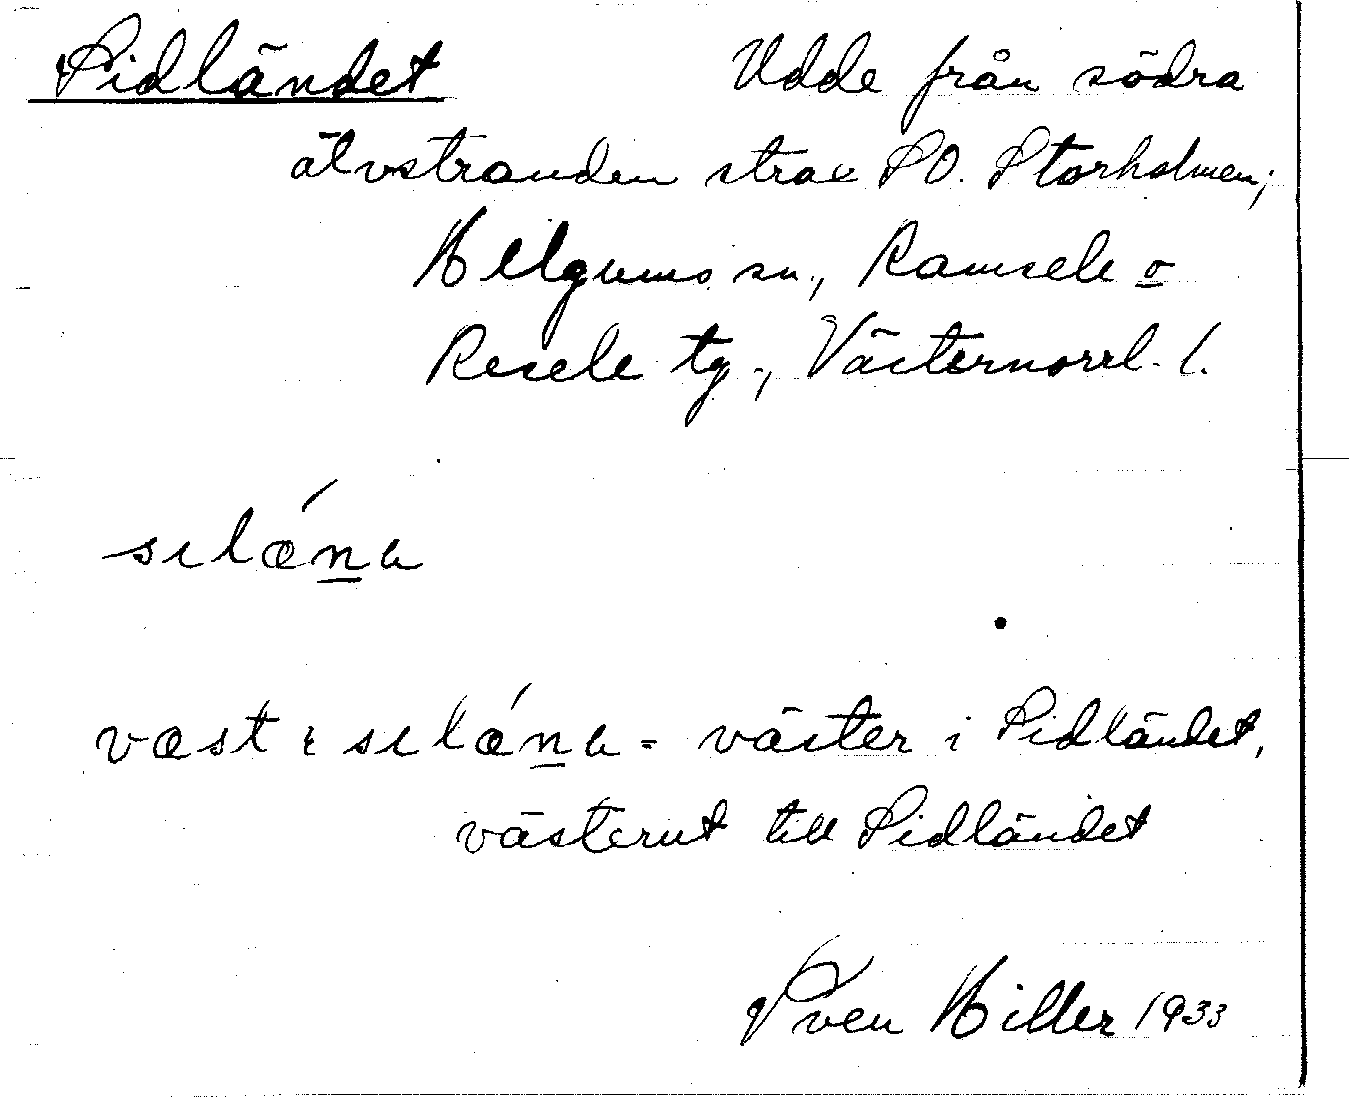 Sidländet Udde från södra
älvstranden strax SO. Storholmen;
Helgums sn., Ramsele o
Resele tg., Västernorrl. l.
sɩlǽna
væst ɩ sɩlǽna = väster i Sidländet,
västerut till Sidländet
Sven Hiller 1933